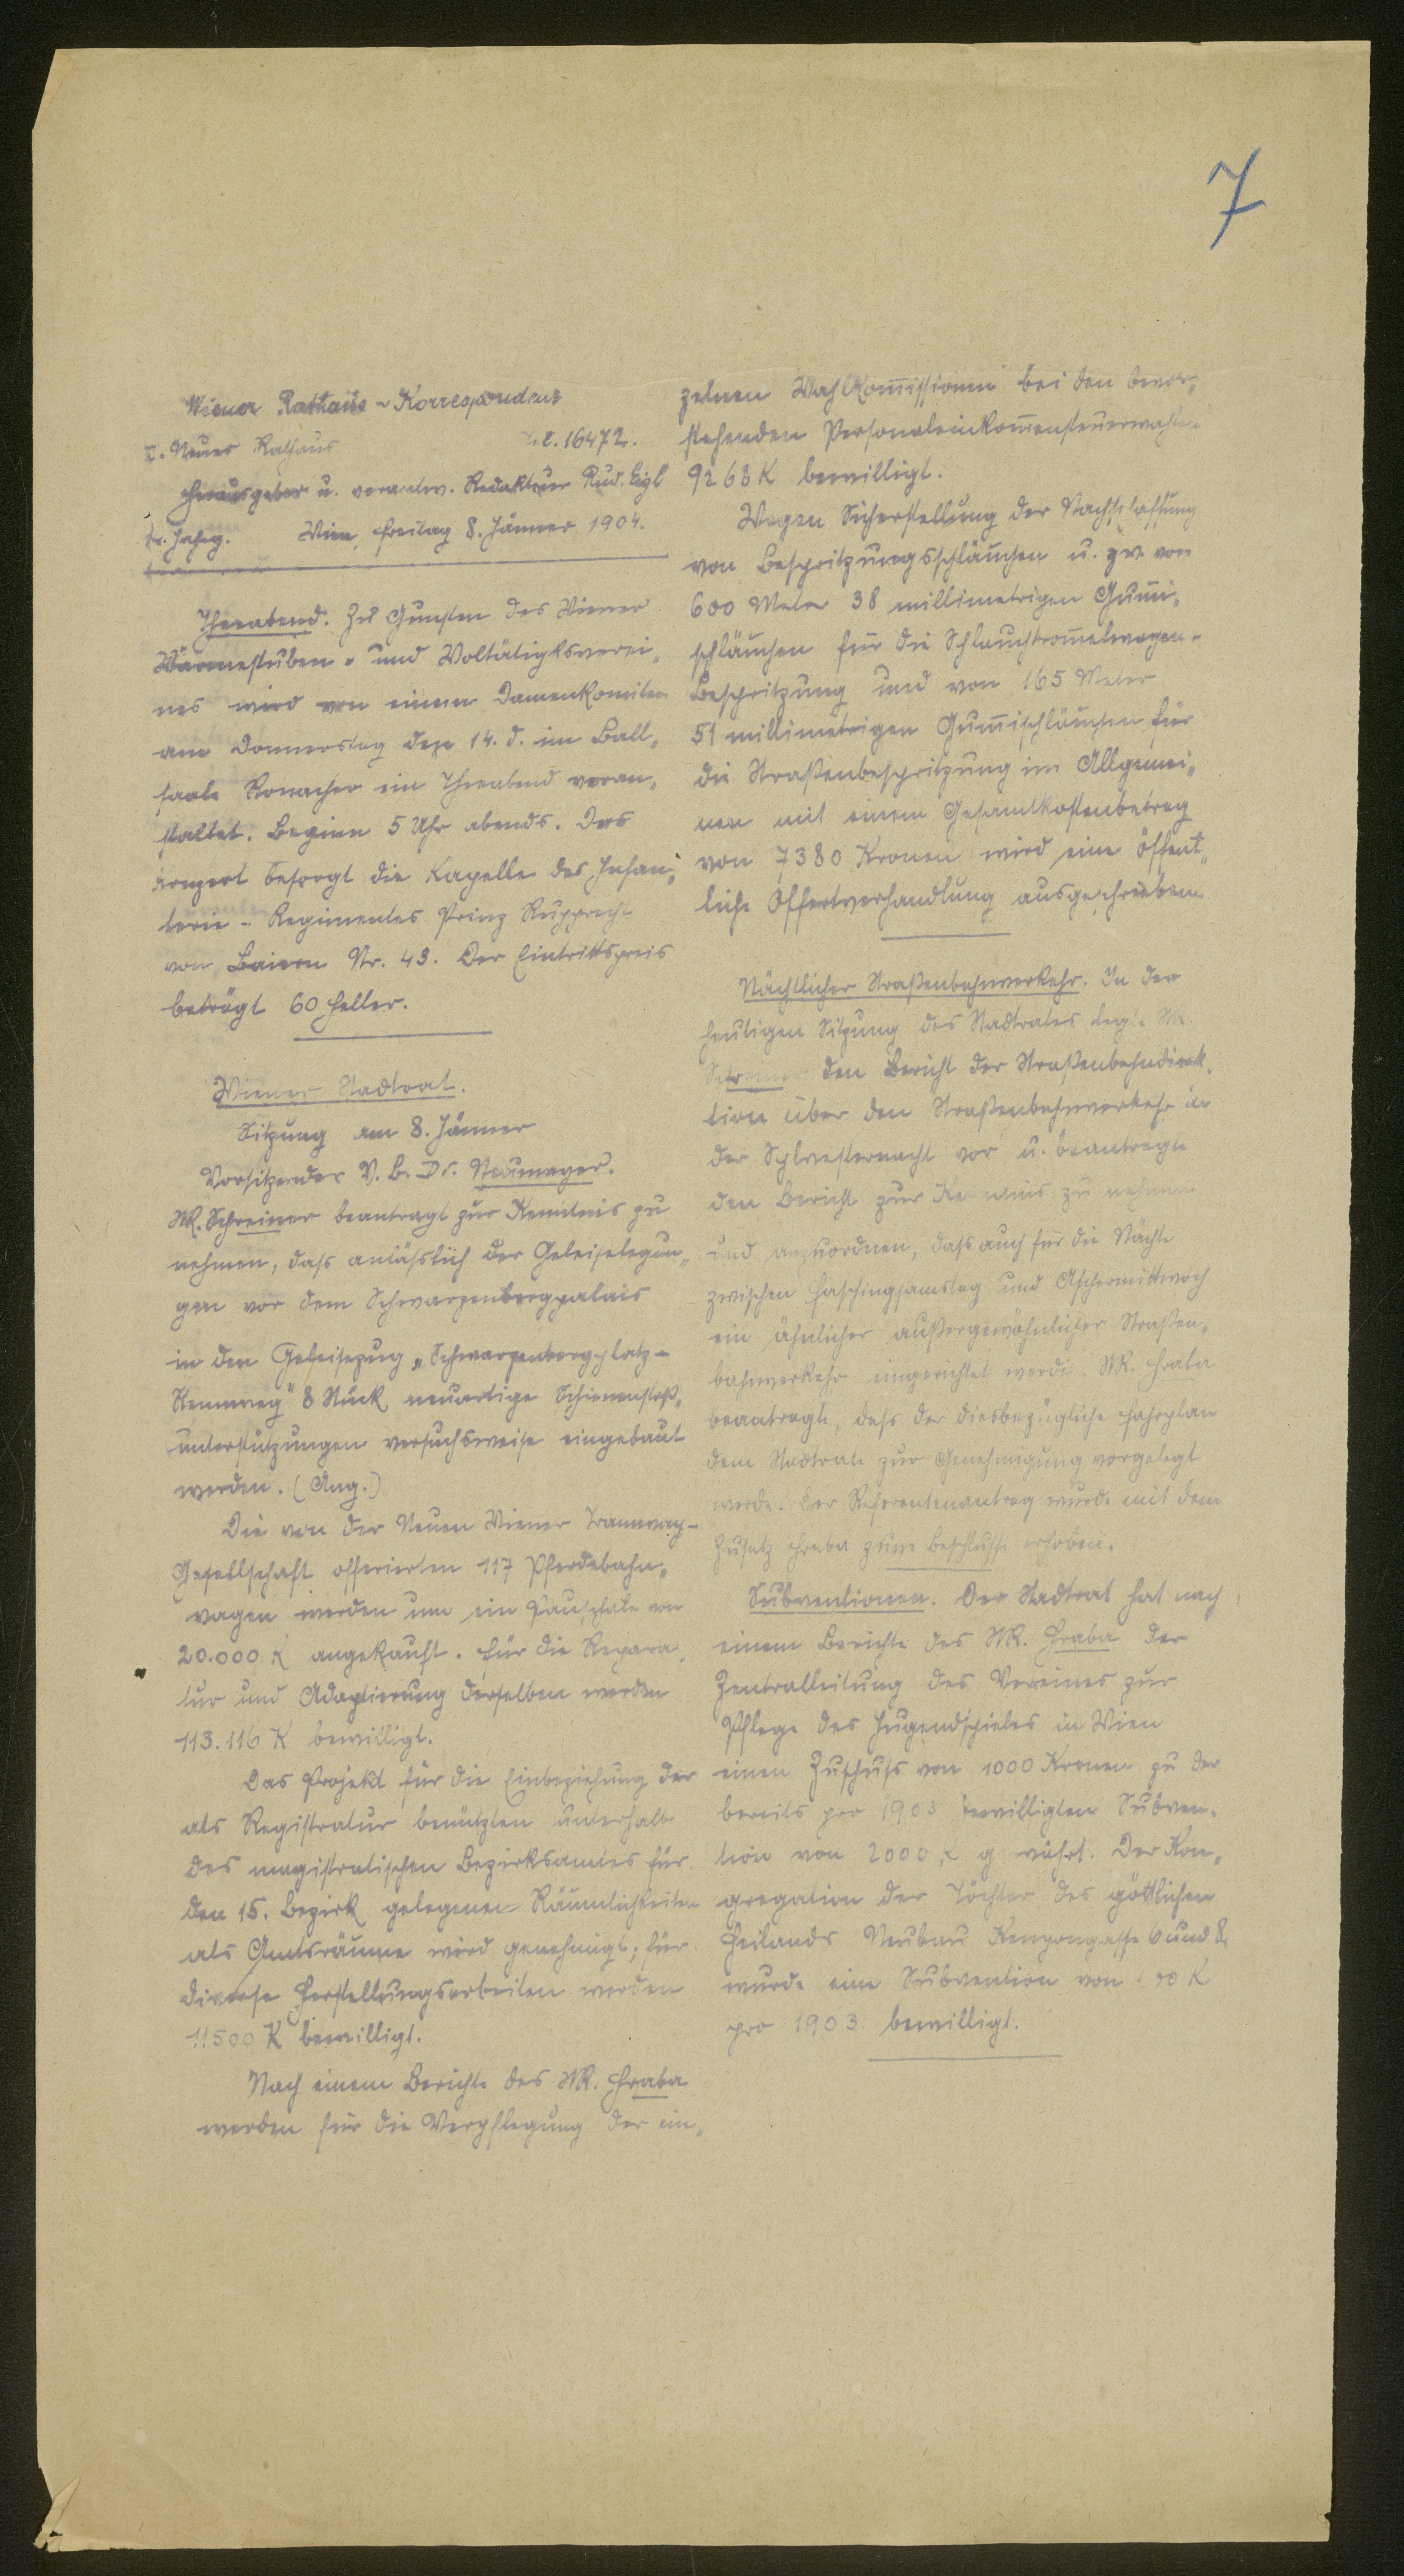 7
Wiener Rathaus-Korrespondenz
I. Neues Rathaus Tel. 16472.
Herausgeber u. verantw. Redakteur Rud. Eigl
Jahrg. Wien, Freitag 8. Jänner 1904.
Theeabend. Zu Gunsten des Wiener
Wärmestuben- und Woltätigksverei„
nes wird von einem Damenkomitee
am Donnerstag den 14. d. im Ball„
saale Ronacher ein Theeabend veran„
staltet. Beginn 5 Uhr abends. Das
Konzert besorgt die Kapelle des Infan„
terie-Regimentes Prinz Rupprecht
von Baiern Nr. 43. Der Eintrittspreis
beträgt 60 Heller.
Wiener Stadtrat.
Sitzung am 8. Jänner
Vorsitzender V. B. Dr. Neumayer.
StR. Schreiner beantragt zur Kenntnis zu
nehmen, daß anläßlich der Geleiselegun„
gen vor dem Schwarzenbergpalais
in den Geleisezug „Schwarzenbergplatz-
Rennweg" 8 Stück neuartige Schienenstoß„
unterstützungen versuchsweise eingebaut
werden. (Ang.)
Die von der Neuen Wiener Tramway-
Gesellschaft offerierten 117 Pferdebahn„
wagen werden um ein Pauschale von
20.000 K angekauft. Für die Repara„
tur und Adaptierung derselben werden
113.116 K bewilligt.
Das Projekt für die Einbeziehung der
als Registratur benützten unterhalb
des magistratischen Bezirksamtes für
den 15. Bezirk gelegenen Räumlichkeiten
als Amtsräume wird genehmigt; für
diverse Herstellungsarbeiten werden
11500 K bewilligt.
Nach einem Berichte des StR. Hraba
werden für die Verpflegung der ein„
zelnen Wahlkom̅issionen bei den bevor„
stehenden Personaleinkom̅ensteuerwahlen
9268 K bewilligt.
Wegen Sicherstellung der Nachschaffung
von Bespritzungsschläuchen u. zw. von
600 Meter 38 millimetrigen Gum̅i„
schläuchen für die Schlauchtrom̅elwagen-
Bespritzung und von 165 Meter
51 millimetrigen Gum̅ischläuchen für
die Straßenbespritzung im Allgemei„
nen mit einem Gesamtkostenbetrag
von 7380 Kronen wird eine öffent„
liche Offertverhandlung ausgeschrieben.
Nächtlicher Straßenbahnverkehr. In der
heutigen Sitzung des Stadtrates legte StR.
Schreiner den Bericht der Straßenbahndirek„
tion über den Straßenbahnverkehr in
der Sylvesternacht vor u. beantragte
den Bericht zur Kenntnis zu nehmen
und anzuordnen, daß auch für die Nächte
zwischen Faschingsamstag und Aschermittwoch
ein ähnlicher außergewöhnlicher Straßen„
bahnverkehr eingerichtet werde. StR. Hraba
beantragte, daß der diesbezügliche Fahrplan
dem Stadtrate zur Genehmigung vorgelegt
werde. Der Referentenantrag wurde mit dem
Zusatz Hraba zum Beschlusse erhoben.
Subventionen. Der Stadtrat hat nach
einem Berichte des StR. Hraba der
Zentralleitung des Vereines zur
Pflege des Jugendspieles in Wien
einen Zuschuß von 1000 Kronen zu der
bereits pro 1903 bewilligten Subven„
tion von 2000 K gewährt. Der Kon„
gregation der Töchter des göttlichen
Heilands Neubau Kenyongasse 6 und 8
wurde eine Subvention von K
pro 1903 bewilligt.